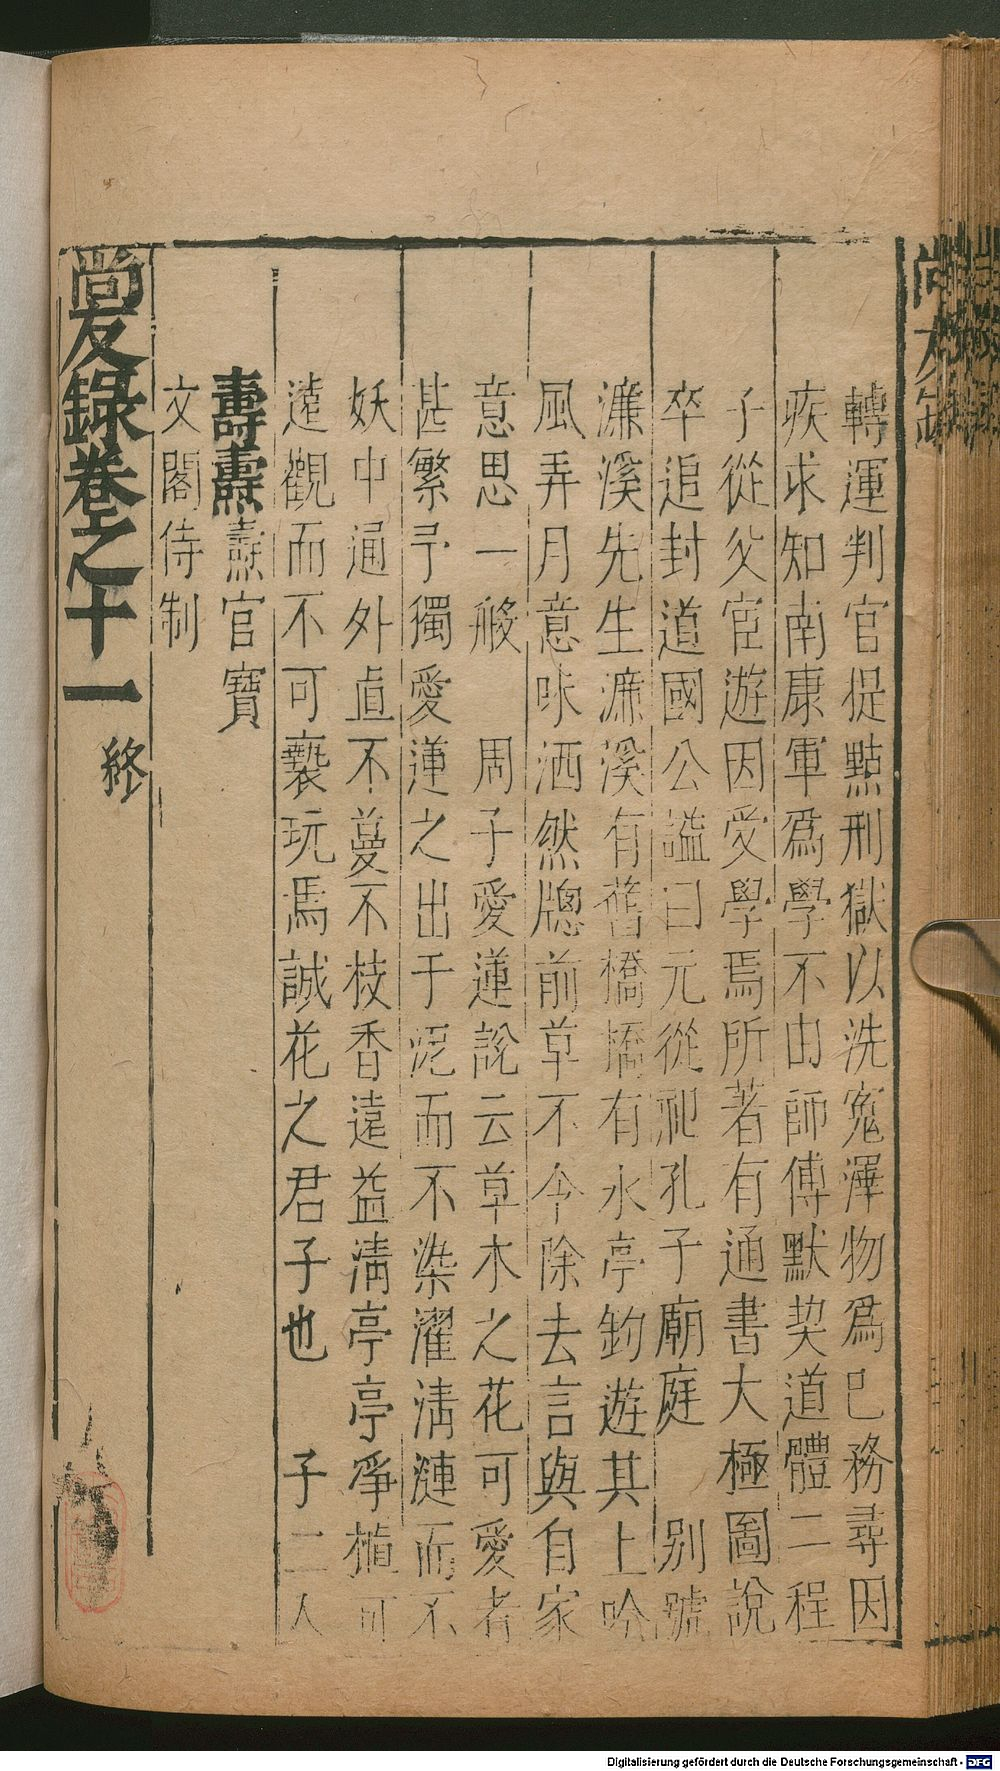 轉運判官促㸃刑獄以洗寃澤物爲已務尋因
疾求知南康軍爲學不由師傅默契道體二程
子從父宦遊因受學焉所著有通書大極圖說
卒追封道國公謚曰元從祀孔子廟庭　別號
濂溪先生濂溪有舊橋橋有水亭釣遊其上吟
風弄月意味洒然牎前草不令除去言與自家
意思一般　周子愛蓮說云草木之花可愛者
甚繁予獨愛蓮之出于泥而不染濯清漣而不
妖中通外直不蔓不枝香遠益清亭亭爭植可
遠觀而不可褻玩焉誠花之君子也　子二人
壽燾燾官寶
文閣侍制
尚友錄卷之十一終
Digitalisierung gefördert durch die Deutsche Forschungsgemeinschaft - DFG